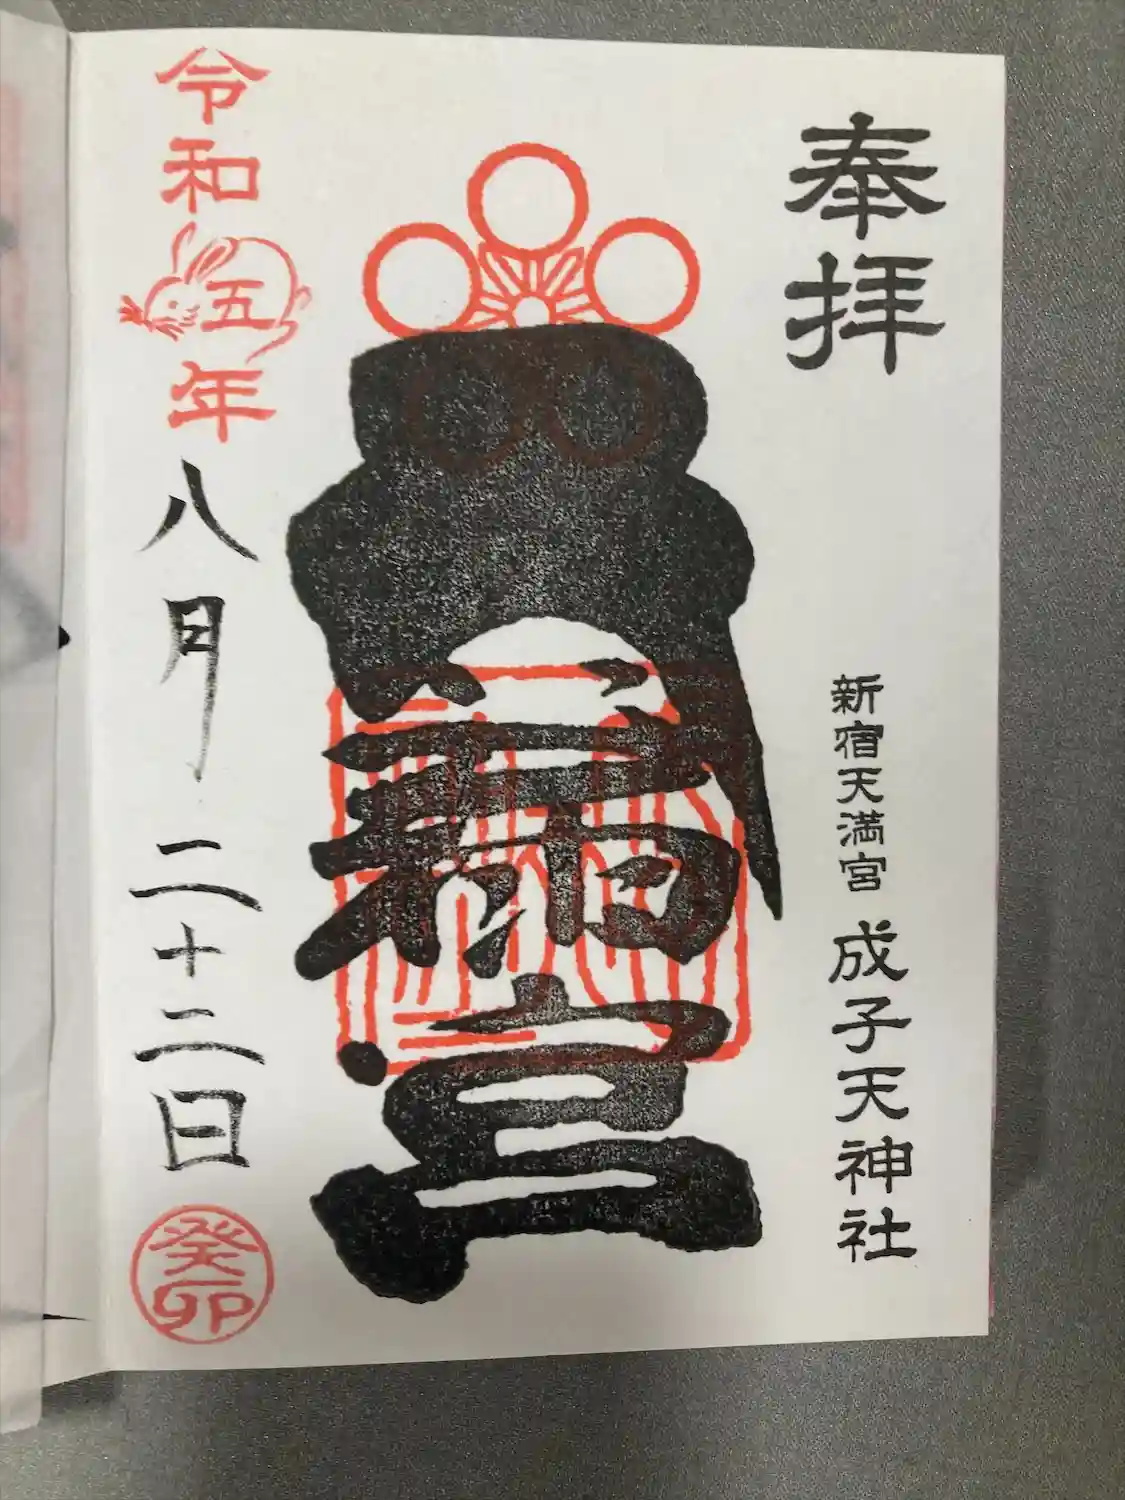 奉拝
新宿天満宮 成子天神社
令和五年
八月二十二日
癸卯